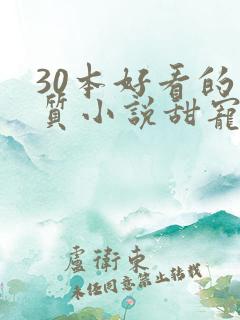 30本好看的
質小說甜寵
盧衛東
未經同意禁止轉載